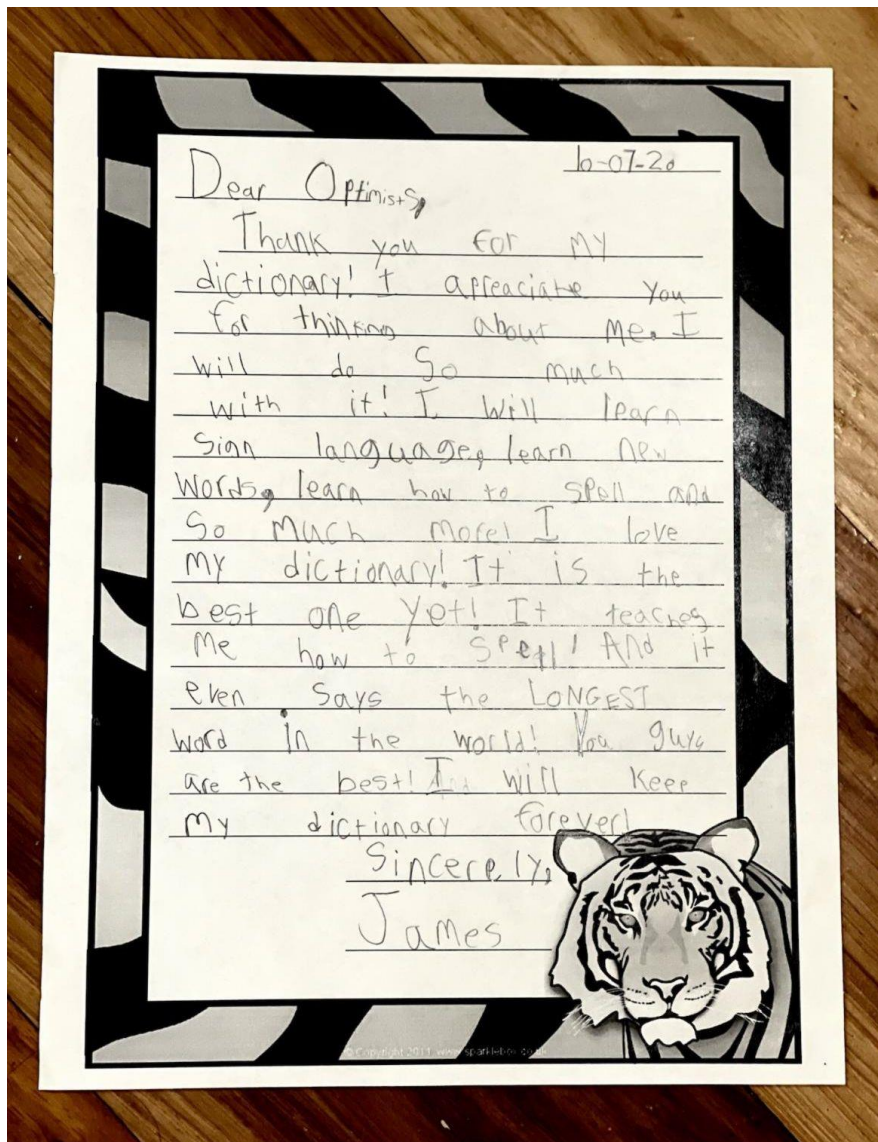 10-07-20
Dear Optimists,
Thank you for my
dictionary! I apreaciate you
for thinking about me. I
will do so much
with it! I will learn
sign language, learn new
words, learn how to spell and
so much more! I love
my dictionary! It is the
best one yet! It teaches
me how to spell! And it
even says the LONGEST
word in the world! You guys
are the best! I will keep
my dictionary forever!
Sincerely,
James
© Copyright 2011 www.sparklebox.co.uk